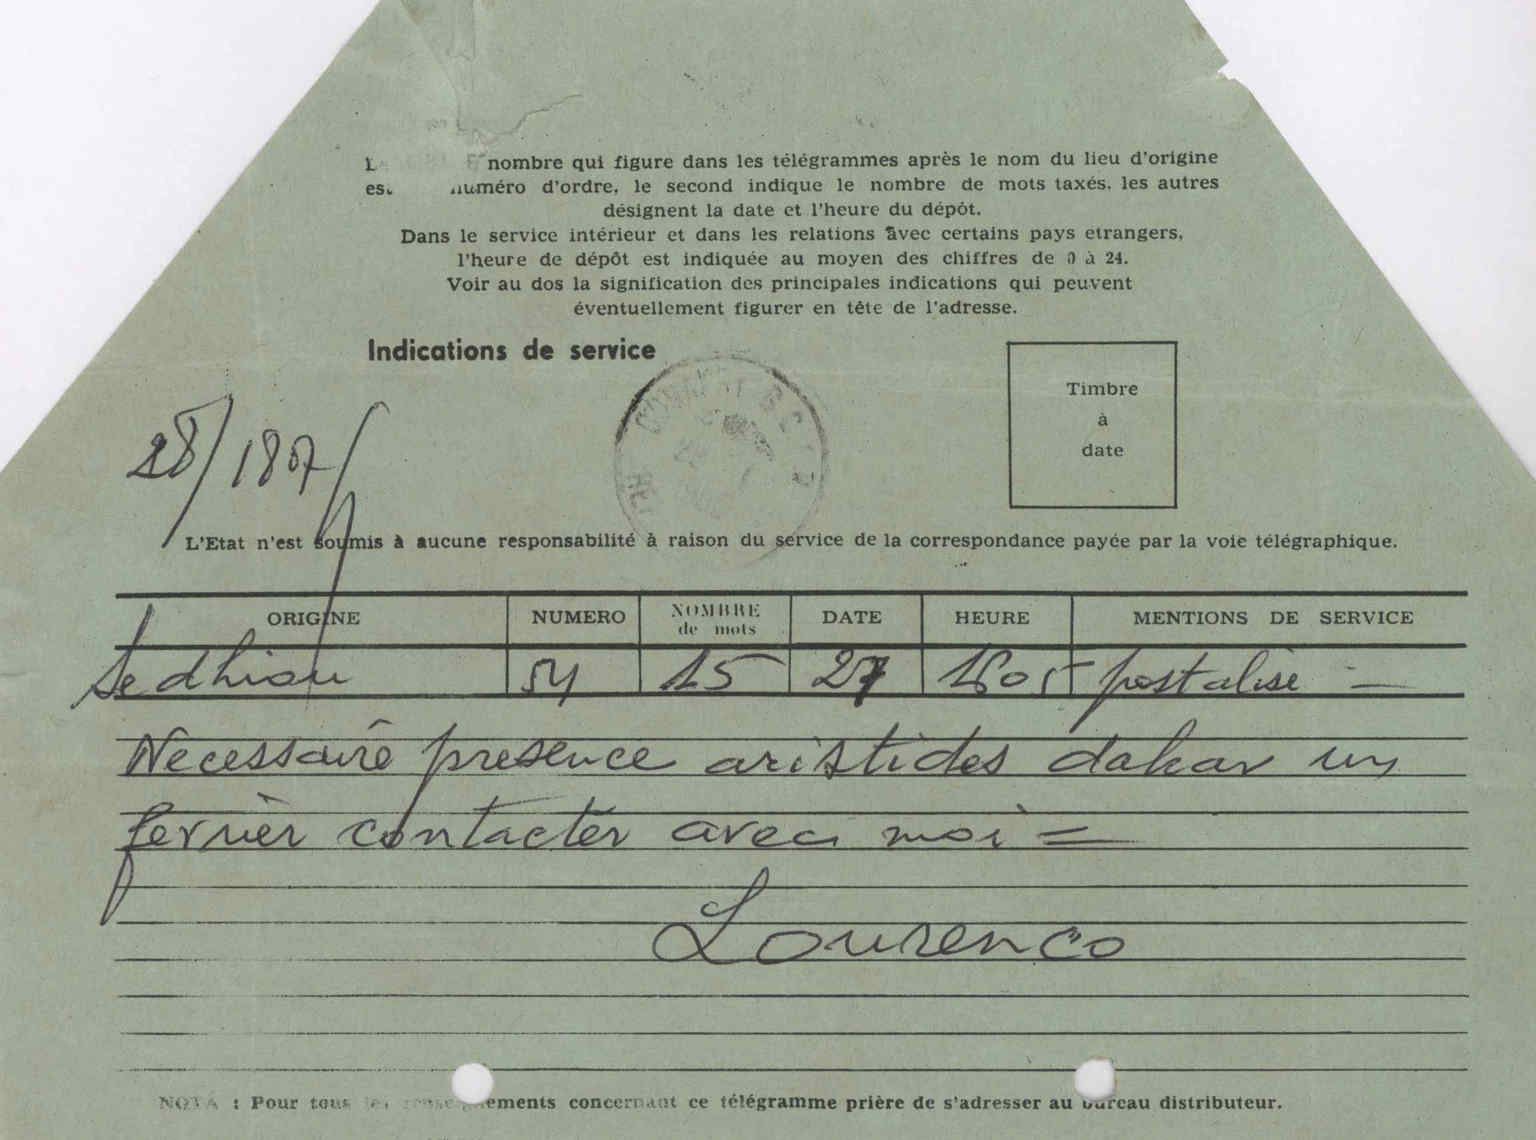 nombre qui figure dans les télégrammes après le nom du lieu d'origine
numéro d'ordre, le second indique le nombre de mots taxés. les autres
désignent la date et l'heure du dépôt.
Dans le service intérieur et dans les relations avec certains pays etrangers,
l'heure de dépôt est indiquée au moyen des chiffres de 0 à 24.
Voir au dos la signification des principales indications qui peuvent
éventuellement figurer en tête de l'adresse.
Indications de service
Timbre
à
date
28/187/
L'Etat n'est soumis à aucune responsabilité à raison du service de la correspondance payée par la voie télégraphique.
ORIGINE NUMERO NOMBRE de mots DATE HEURE MENTIONS DE SERVICE
Sedhiou 54 15 27 1605 postalisé =
Necessaire presence aristides dakar un
fevrier contacter avec moi =
Lourenco
NOTA : Pour tous les renseignements concernant ce télégramme prière de s'adresser au bureau distributeur.